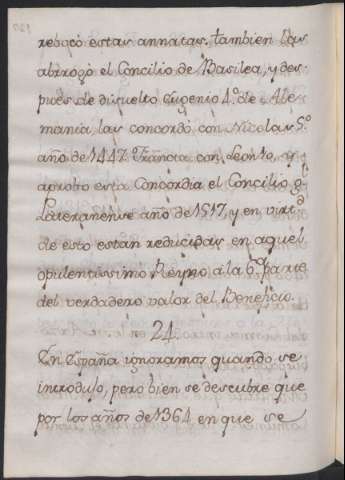 rebocó estas annatas. tambien las
abrrogó el Concilio de Basilea, y des-
pues de disuelto Eugenio 4.º de Ale-
mania, las concordó con Nicolas 5.º
año de 1447. Francia con Leon 10, y
aprobo esta Concordia el Concilio
Lateranense año de 1517, y en virtd
de esto estan reducidas en aquel
opulentissimo Reyno á la 6.ª parte
del verdadero valor del Beneficio.
24.
En España ignoramos quando se
introdujo, pero bien se descubre que
por los años de 1364 en que se